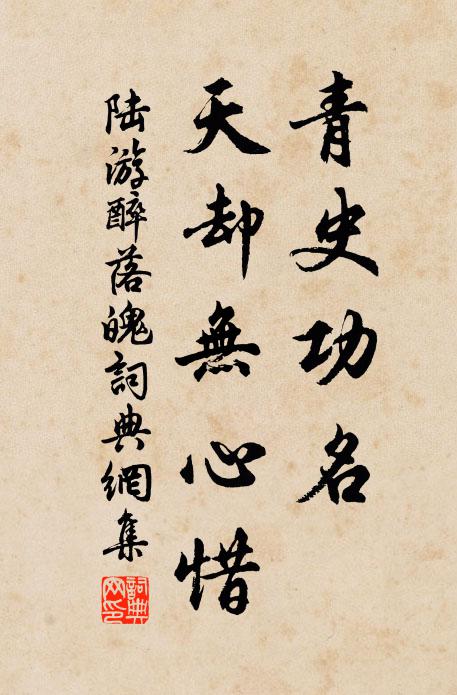 青史功名
天却無心惜
陆游醉落魄詞典網集
詞典
网印